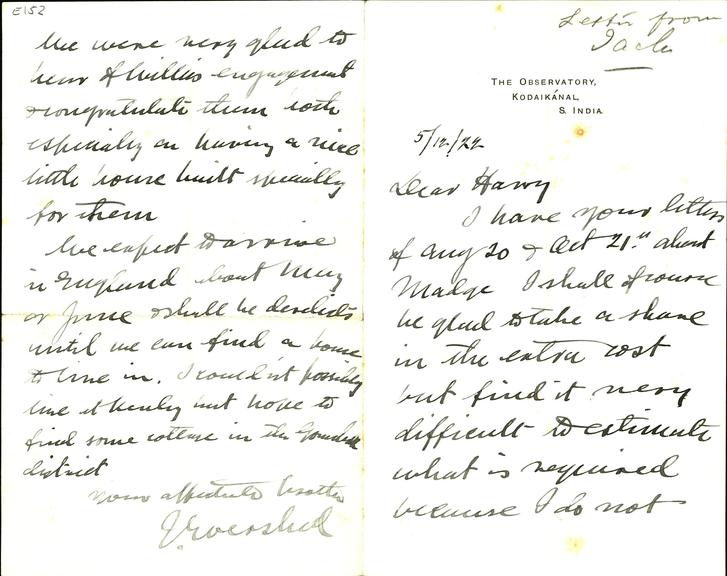 E152
Letter from
Jack
THE OBSERVATORY,
KODAIKÁNAL,
S. INDIA.
5/12/22
Dear Harry
I have your letters
of Aug 20 & Oct 21st about
Madge I shall of course
be glad to take a share
in the extra cost
but find it very
difficult to estimate
what is required
because I do not
We were very glad to
hear of engagement
& congratulate them both
especially on having a nice
little house built specially
for them
We expect to arrive
in England about May
or June & shall be derelicts
until we can find a house
to live in. I couldn't possibly
live at Kenley but hope to
find some cottage in the Gomshall
district
Your brother
J. Evershed